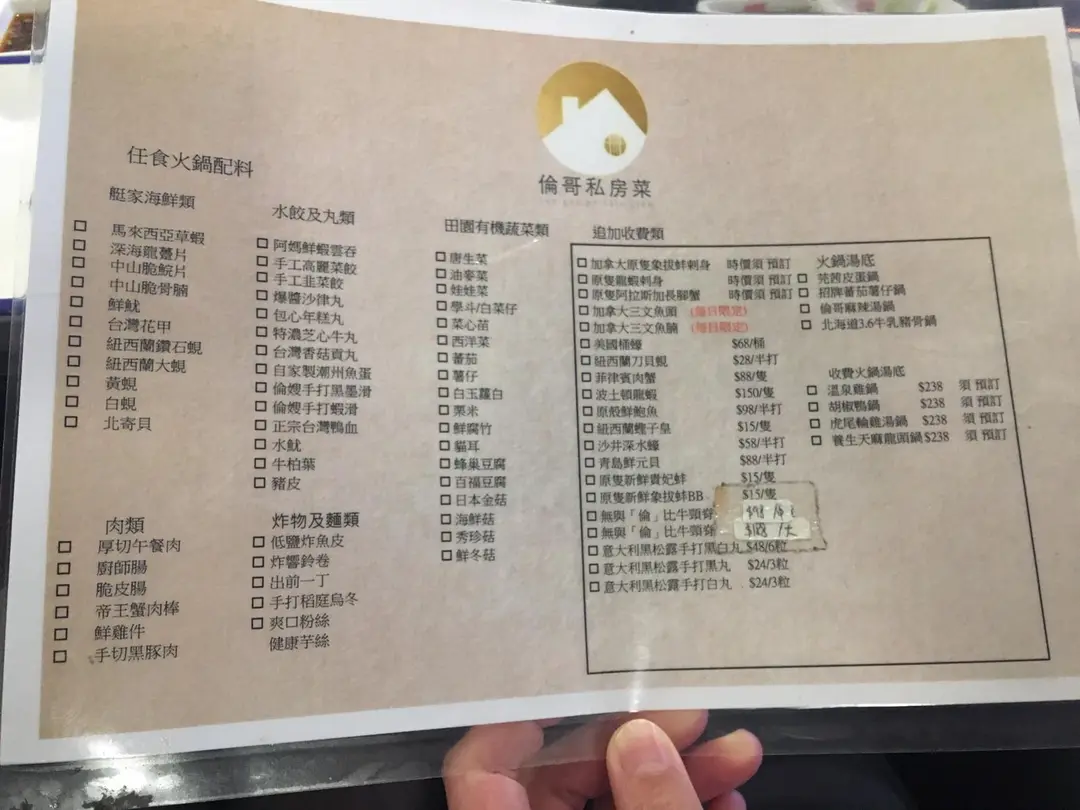 倫哥私房菜
任食火鍋配料
艇家海鮮類
馬來西亞草蝦
深海龍躉片
中山脆鯇片
中山脆骨腩
鮮魷
台灣花甲
紐西蘭鑽石蜆
紐西蘭大蜆
黃蜆
白蜆
北寄貝
肉類
厚切午餐肉
廚師腸
脆皮腸
帝王蟹肉棒
鮮雞件
手切黑豚肉
水餃及丸類
阿媽鮮蝦雲吞
手工高麗菜餃
手工韭菜餃
爆醬沙律丸
包心年糕丸
特濃芝心牛丸
台灣香菇貢丸
自家製潮州魚蛋
倫嫂手打黑墨滑
倫嫂手打蝦滑
正宗台灣鴨血
水魷
牛柏葉
豬皮
炸物及麵類
低鹽炸魚皮
炸響鈴卷
出前一丁
手打稻庭烏冬
爽口粉絲
健康芋絲
田園有機蔬菜類
唐生菜
油麥菜
娃娃菜
學斗/白菜仔
菜心苗
西洋菜
蕃茄
薯仔
白玉蘿白
粟米
鮮腐竹
貓耳
蜂巢豆腐
百福豆腐
日本金菇
海鮮菇
秀珍菇
鮮冬菇
追加收費類
加拿大原隻象拔蚌刺身 時價須 預訂
原隻龍蝦刺身 時價須 預訂
原隻阿拉斯加長腳蟹 時價須 預訂
加拿大三文魚頭 (每日限定)
加拿大三文魚腩 (每日限定)
美國桶蠔 $68/桶
紐西蘭刀貝蜆 $28/半打
菲律賓肉蟹 $88/隻
波士頓龍蝦 $150/隻
原殼鮮鮑魚 $98/半打
紐西蘭蟶子皇 $15/隻
沙井深水蠔 $58/半打
青島鮮元貝 $88/半打
原隻新鮮貴妃蚌 $15/隻
原隻新鮮象拔蚌BB $15/隻
無與「倫」比牛頸脊
無與「倫」比牛頸脊
意大利黑松露手打黑白丸 $48/6粒
意大利黑松露手打黑丸 $24/3粒
意大利黑松露手打白丸 $24/3粒
火鍋湯底
芫茜皮蛋鍋
招牌蕃茄薯仔鍋
倫哥麻辣湯鍋
北海道3.6牛乳豬骨鍋
收費火鍋湯底
溫泉雞鍋 $238 須 預訂
胡椒鴨鍋 $238 須 預訂
虎尾輪雞湯鍋 $238 須 預訂
養生天麻龍頭鍋 $238 須 預訂